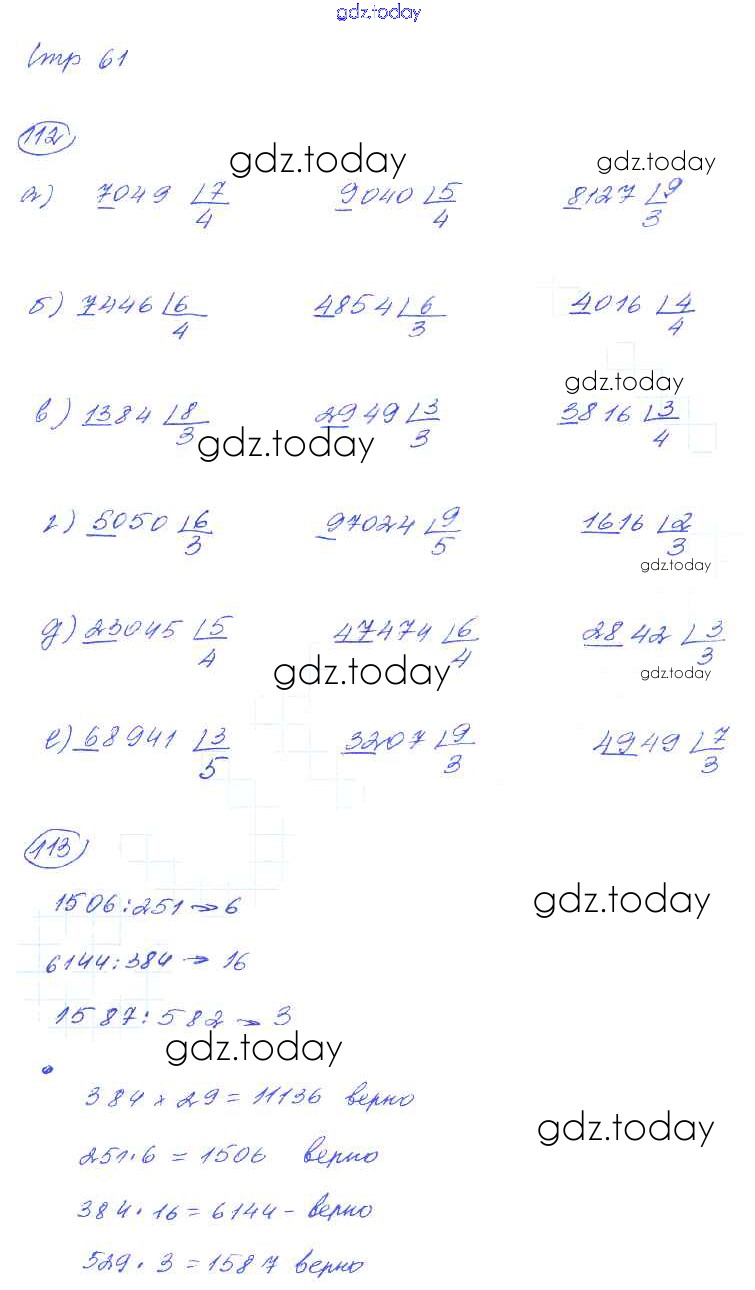 gdz.today
Стр 61
112
gdz.today gdz.today
а) 7049 7 9040 5 8127 9
4 4 3
б) 7446 6 4854 6 4016 4
4 3 4
gdz.today
в) 1384 8 2949 3 3816 3
3 3 4
gdz.today
г) 5050 6 97024 9 1616 2
3 5 3
gdz.today
д) 23045 5 47474 6 2842 3
4 4 3
gdz.today gdz.today
е) 68941 3 3207 9 4949 7
5 3 3
113
1506:251 → 6 gdz.today
6144:384 → 16
1587:582 → 3
gdz.today
• 384 × 29 = 11136 верно
gdz.today
251·6 = 1506 верно
384·16 = 6144 - верно
529·3 = 1587 верно